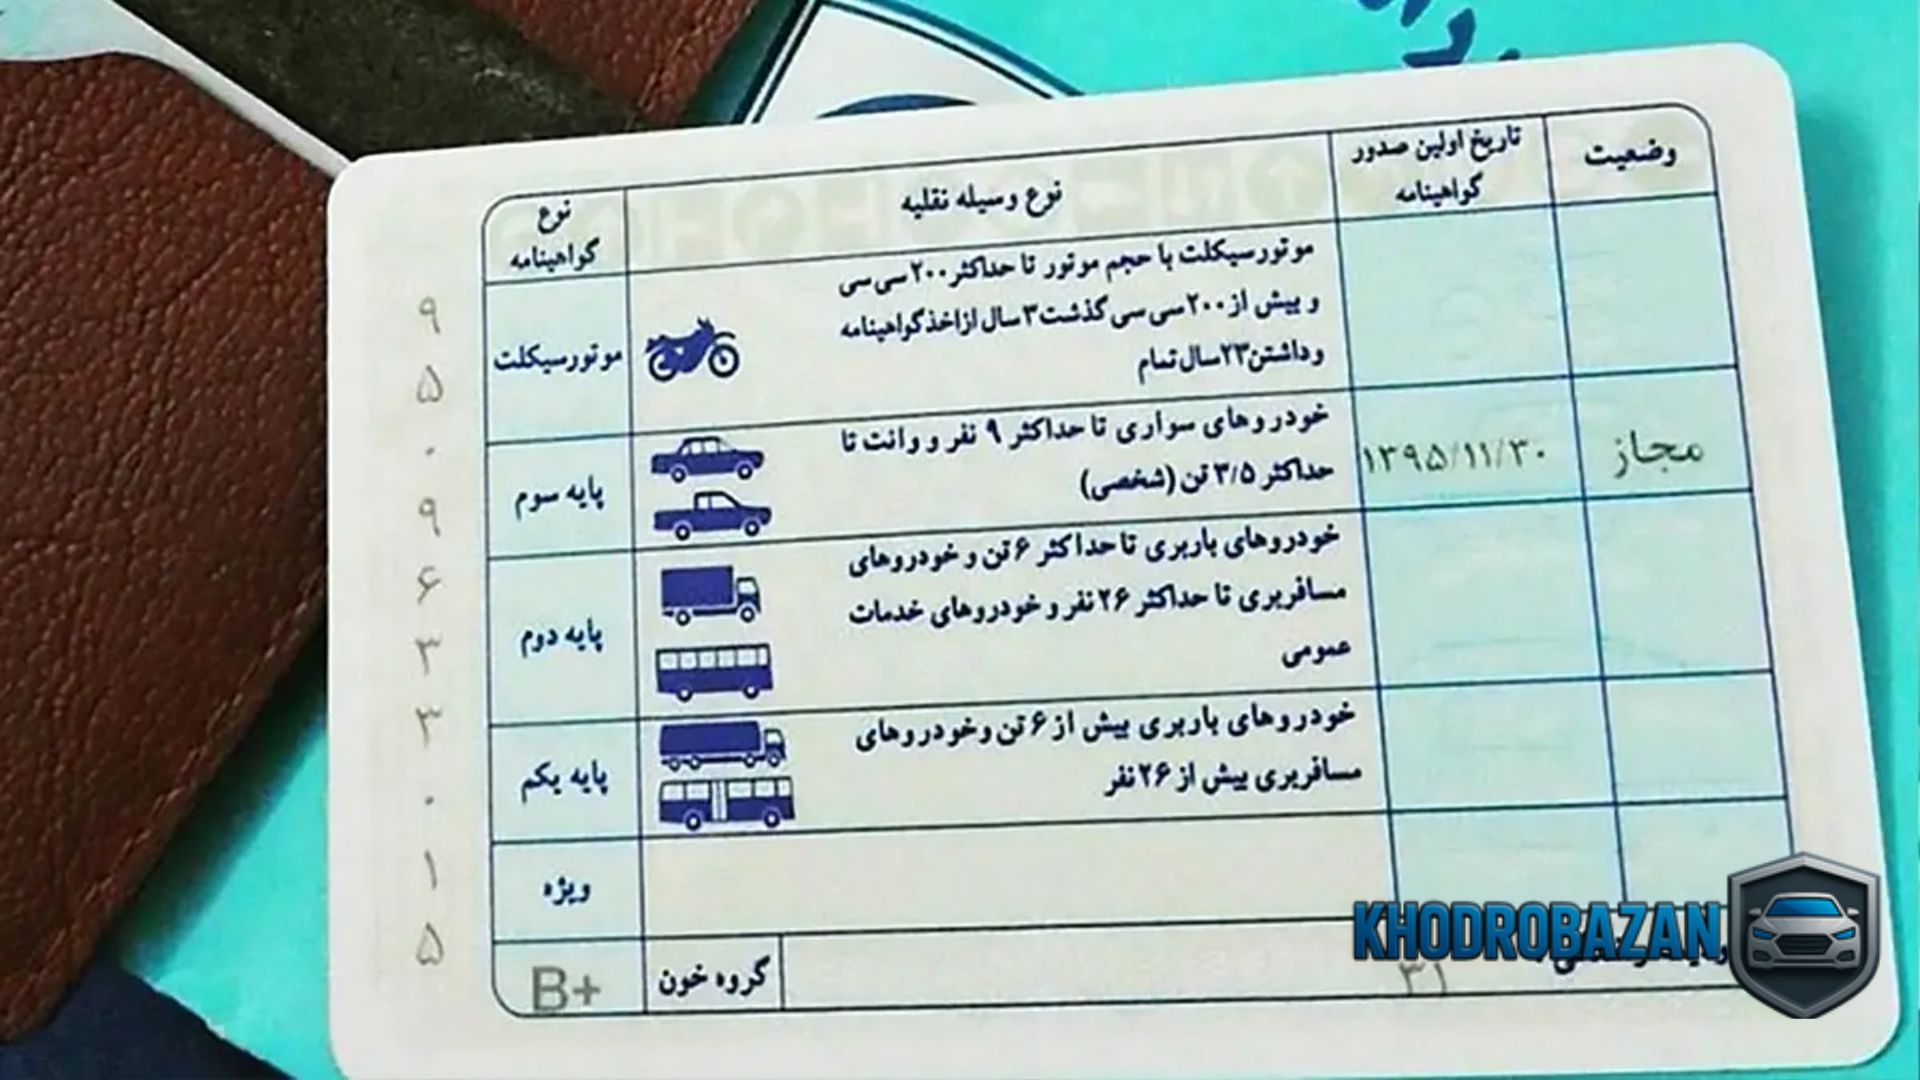 وضعیت
تاریخ اولین صدور
گواهینامه
نوع وسیله نقلیه
نوع
گواهینامه
موتورسیکلت با حجم موتور تا حداکثر ۲۰۰ سی سی
و بیش از ۲۰۰ سی سی گذشت ۳ سال از اخذ گواهینامه
و داشتن ۲۳ سال تمام
موتورسیکلت
مجاز
۱۳۹۵/۱۱/۳۰
خودروهای سواری تا حداکثر ۹ نفر و وانت تا
حداکثر ۳/۵ تن (شخصی)
پایه سوم
خودروهای باربری تا حداکثر ۶ تن و خودروهای
مسافربری تا حداکثر ۲۶ نفر و خودروهای خدمات
عمومی
پایه دوم
خودروهای باربری بیش از ۶ تن و خودروهای
مسافربری بیش از ۲۶ نفر
پایه یکم
ویژه
۳۱
گروه خون
B+
۹
۵
۰
۹
۶
۳
۳
۰
۱
۵
KHODROBAZAN